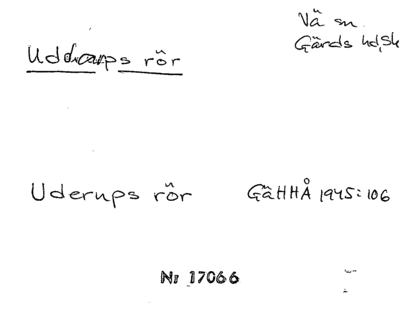 Vä sn.
Gärds hd, Sk
rör
Uderups rör GäHHÅ 1945:106
Nr 17066